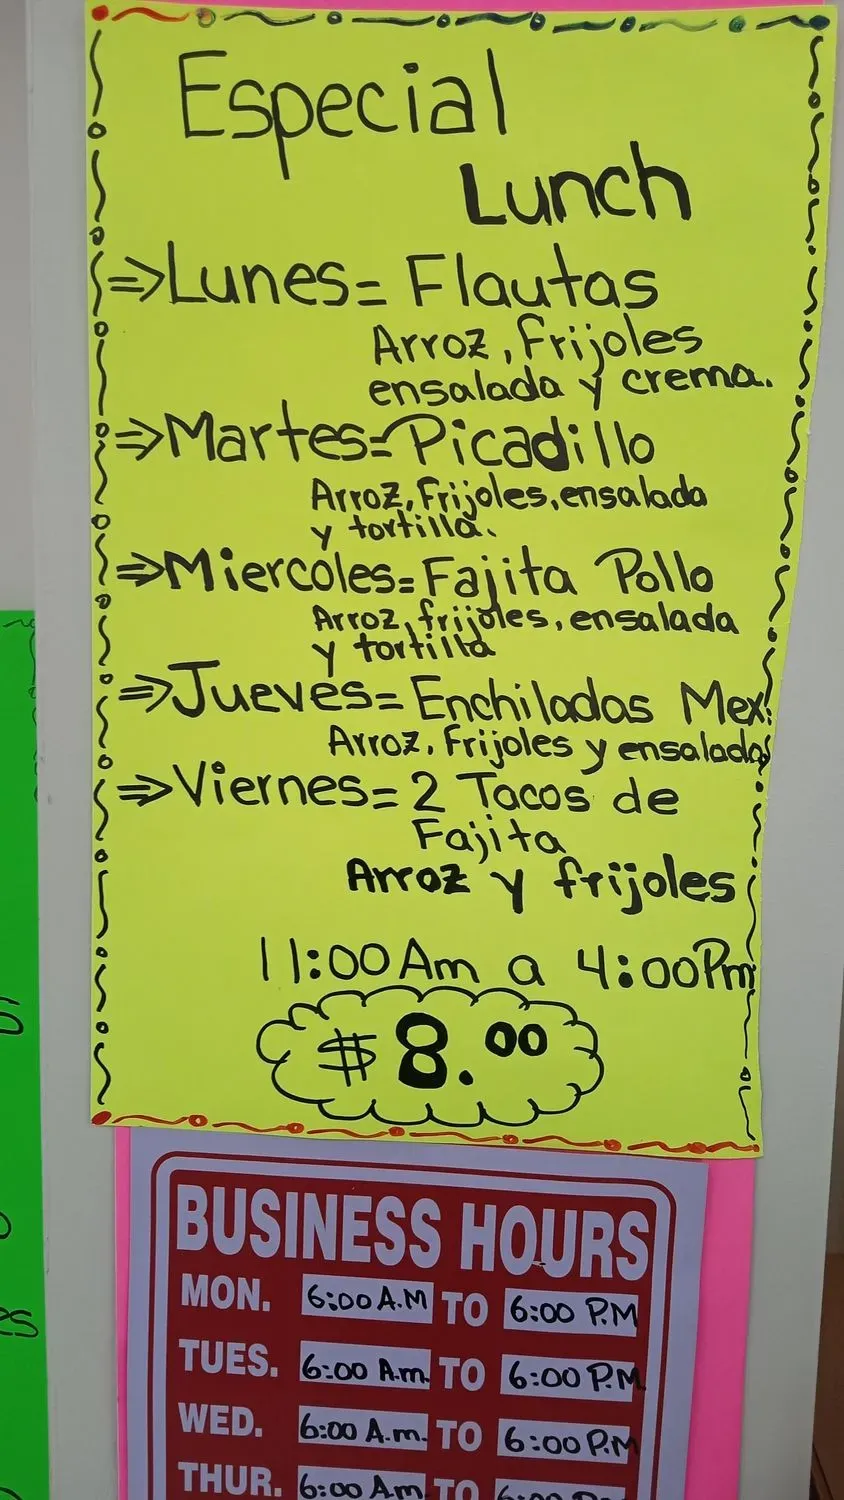 Especial
Lunch
⇒Lunes= Flautas
Arroz, Frijoles
ensalada y crema.
⇒Martes= Picadillo
Arroz, Frijoles, ensalada
y tortilla.
⇒Miercoles= Fajita Pollo
Arroz, frijoles, ensalada
y tortilla
⇒Jueves= Enchiladas Mex.
Arroz, Frijoles y ensalada
⇒Viernes= 2 Tacos de
Fajita
Arroz y frijoles
11:00 Am a 4:00 Pm
$8.00
BUSINESS HOURS
MON. 6:00 A.M TO 6:00 P.M
TUES. 6:00 A.m. TO 6:00 P.M
WED. 6:00 A.m. TO 6:00 P.M
THUR. 6:00 Am TO 6:00 P.M